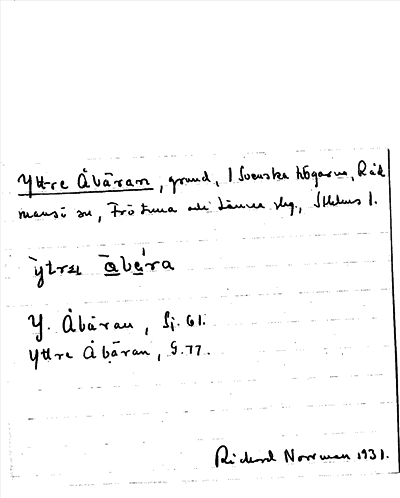 Yttre Åbåran, grund, I Svenska Högarna, Råd
mansö sn, Frötuna och Länna skg, Sthlms l.
ỳtrə ā̀bǝ́ra
Y. Åbåran, Sj. 61.
Yttre Åbåran, G. 77.
Rickard Norrman 1931.